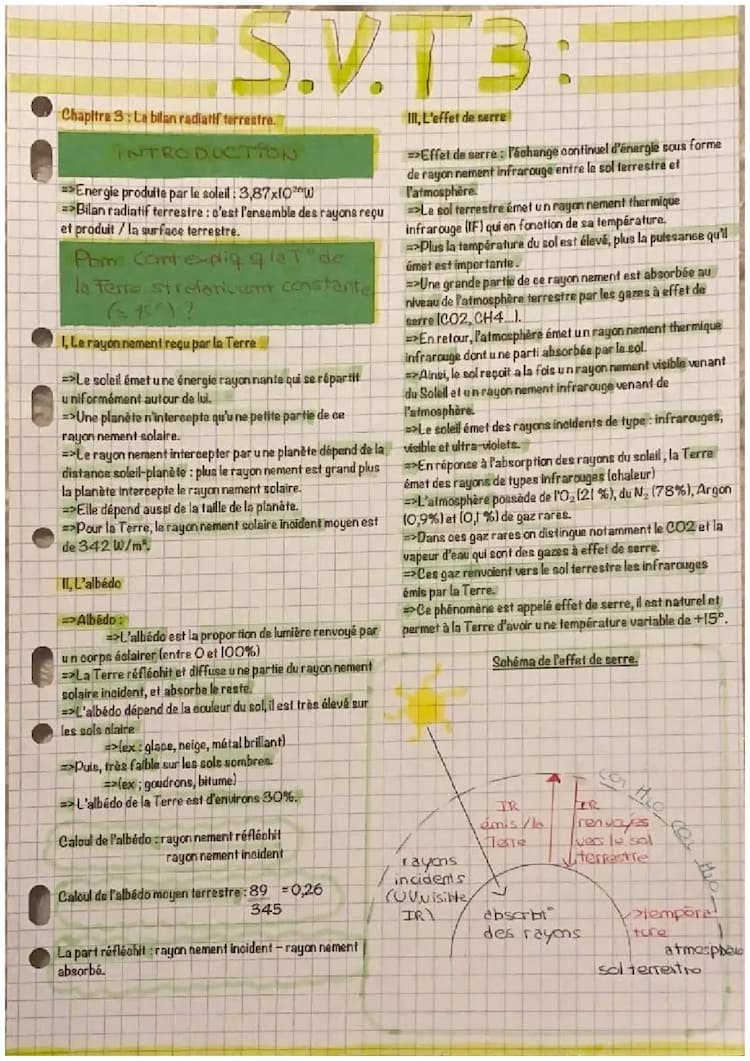 S.V.T 3 :
Chapitre 3 : Le bilan radiatif terrestre.
INTRODUCTION
=>Energie produite par le soleil : 3,87x10²⁶W
=>Bilan radiatif terrestre : c'est l'ensemble des rayons reçu
et produit / la surface terrestre.
Pbm: Comt expliq q la T° de
la Terre st relativemt constante
(≈ 15°) ?
I, Le rayonnement reçu par la Terre
=>Le soleil émet une énergie rayonnante qui se répartit
uniformément autour de lui.
=>Une planète n'intercepte qu'une petite partie de ce
rayonnement solaire.
=>Le rayonnement intercepter par une planète dépend de la
distance soleil-planète : plus le rayonnement est grand plus
la planète intercepte le rayonnement solaire.
=>Elle dépend aussi de la taille de la planète.
=>Pour la Terre, le rayonnement solaire incident moyen est
de 342 W/m².
II, L'albédo
=>Albédo :
=>L'albédo est la proportion de lumière renvoyé par
un corps éclairer (entre 0 et 100%)
=>La Terre réfléchit et diffuse une partie du rayonnement
solaire incident, et absorbe le reste.
=>L'albédo dépend de la couleur du sol, il est très élevé sur
les sols claire
=>(ex : glace, neige, métal brillant)
=>Puis, très faible sur les sols sombres.
=>(ex ; goudrons, bitume)
=> L'albédo de la Terre est d'environs 30%.
Calcul de l'albédo : rayonnement réfléchit
rayonnement incident
Calcul de l'albédo moyen terrestre : 89 = 0,26
345
La part réfléchit : rayonnement incident – rayonnement
absorbé.
III, L'effet de serre
=>Effet de serre : l'échange continuel d'énergie sous forme
de rayonnement infrarouge entre le sol terrestre et
l'atmosphère.
=>Le sol terrestre émet un rayonnement thermique
infrarouge (IF) qui en fonction de sa température.
=>Plus la température du sol est élevé, plus la puissance qu'il
émet est importante.
=>Une grande partie de ce rayonnement est absorbée au
niveau de l'atmosphère terrestre par les gazes à effet de
serre (CO2, CH4...).
=>En retour, l'atmosphère émet un rayonnement thermique
infrarouge dont une parti absorbée par le sol.
=>Ainsi, le sol reçoit à la fois un rayonnement visible venant
du Soleil et un rayonnement infrarouge venant de
l'atmosphère.
=>Le soleil émet des rayons incidents de type : infrarouges,
visible et ultra-violets.
=>En réponse à l'absorption des rayons du soleil, la Terre
émet des rayons de types infrarouges (chaleur)
=>L'atmosphère possède de l'O₂ (21 %), du N₂ (78%), Argon
(0,9%) et (0,1 %) de gaz rares.
=>Dans ces gaz rares on distingue notamment le CO2 et la
vapeur d'eau qui sont des gazes à effet de serre.
=>Ces gaz renvoient vers le sol terrestre les infrarouges
émis par la Terre.
=>Ce phénomène est appelé effet de serre, il est naturel et
permet à la Terre d'avoir une température variable de +15°.
Schéma de l'effet de serre.
CO₂ H₂O CO₂ H₂O
IR
émis/la
Terre
IR
renvoyés
vers le sol
terrestre
rayons
incidents
(UV,visible,
IR)
absorbt°
des rayons
>tempéra
ture
atmosphère
sol terrestre